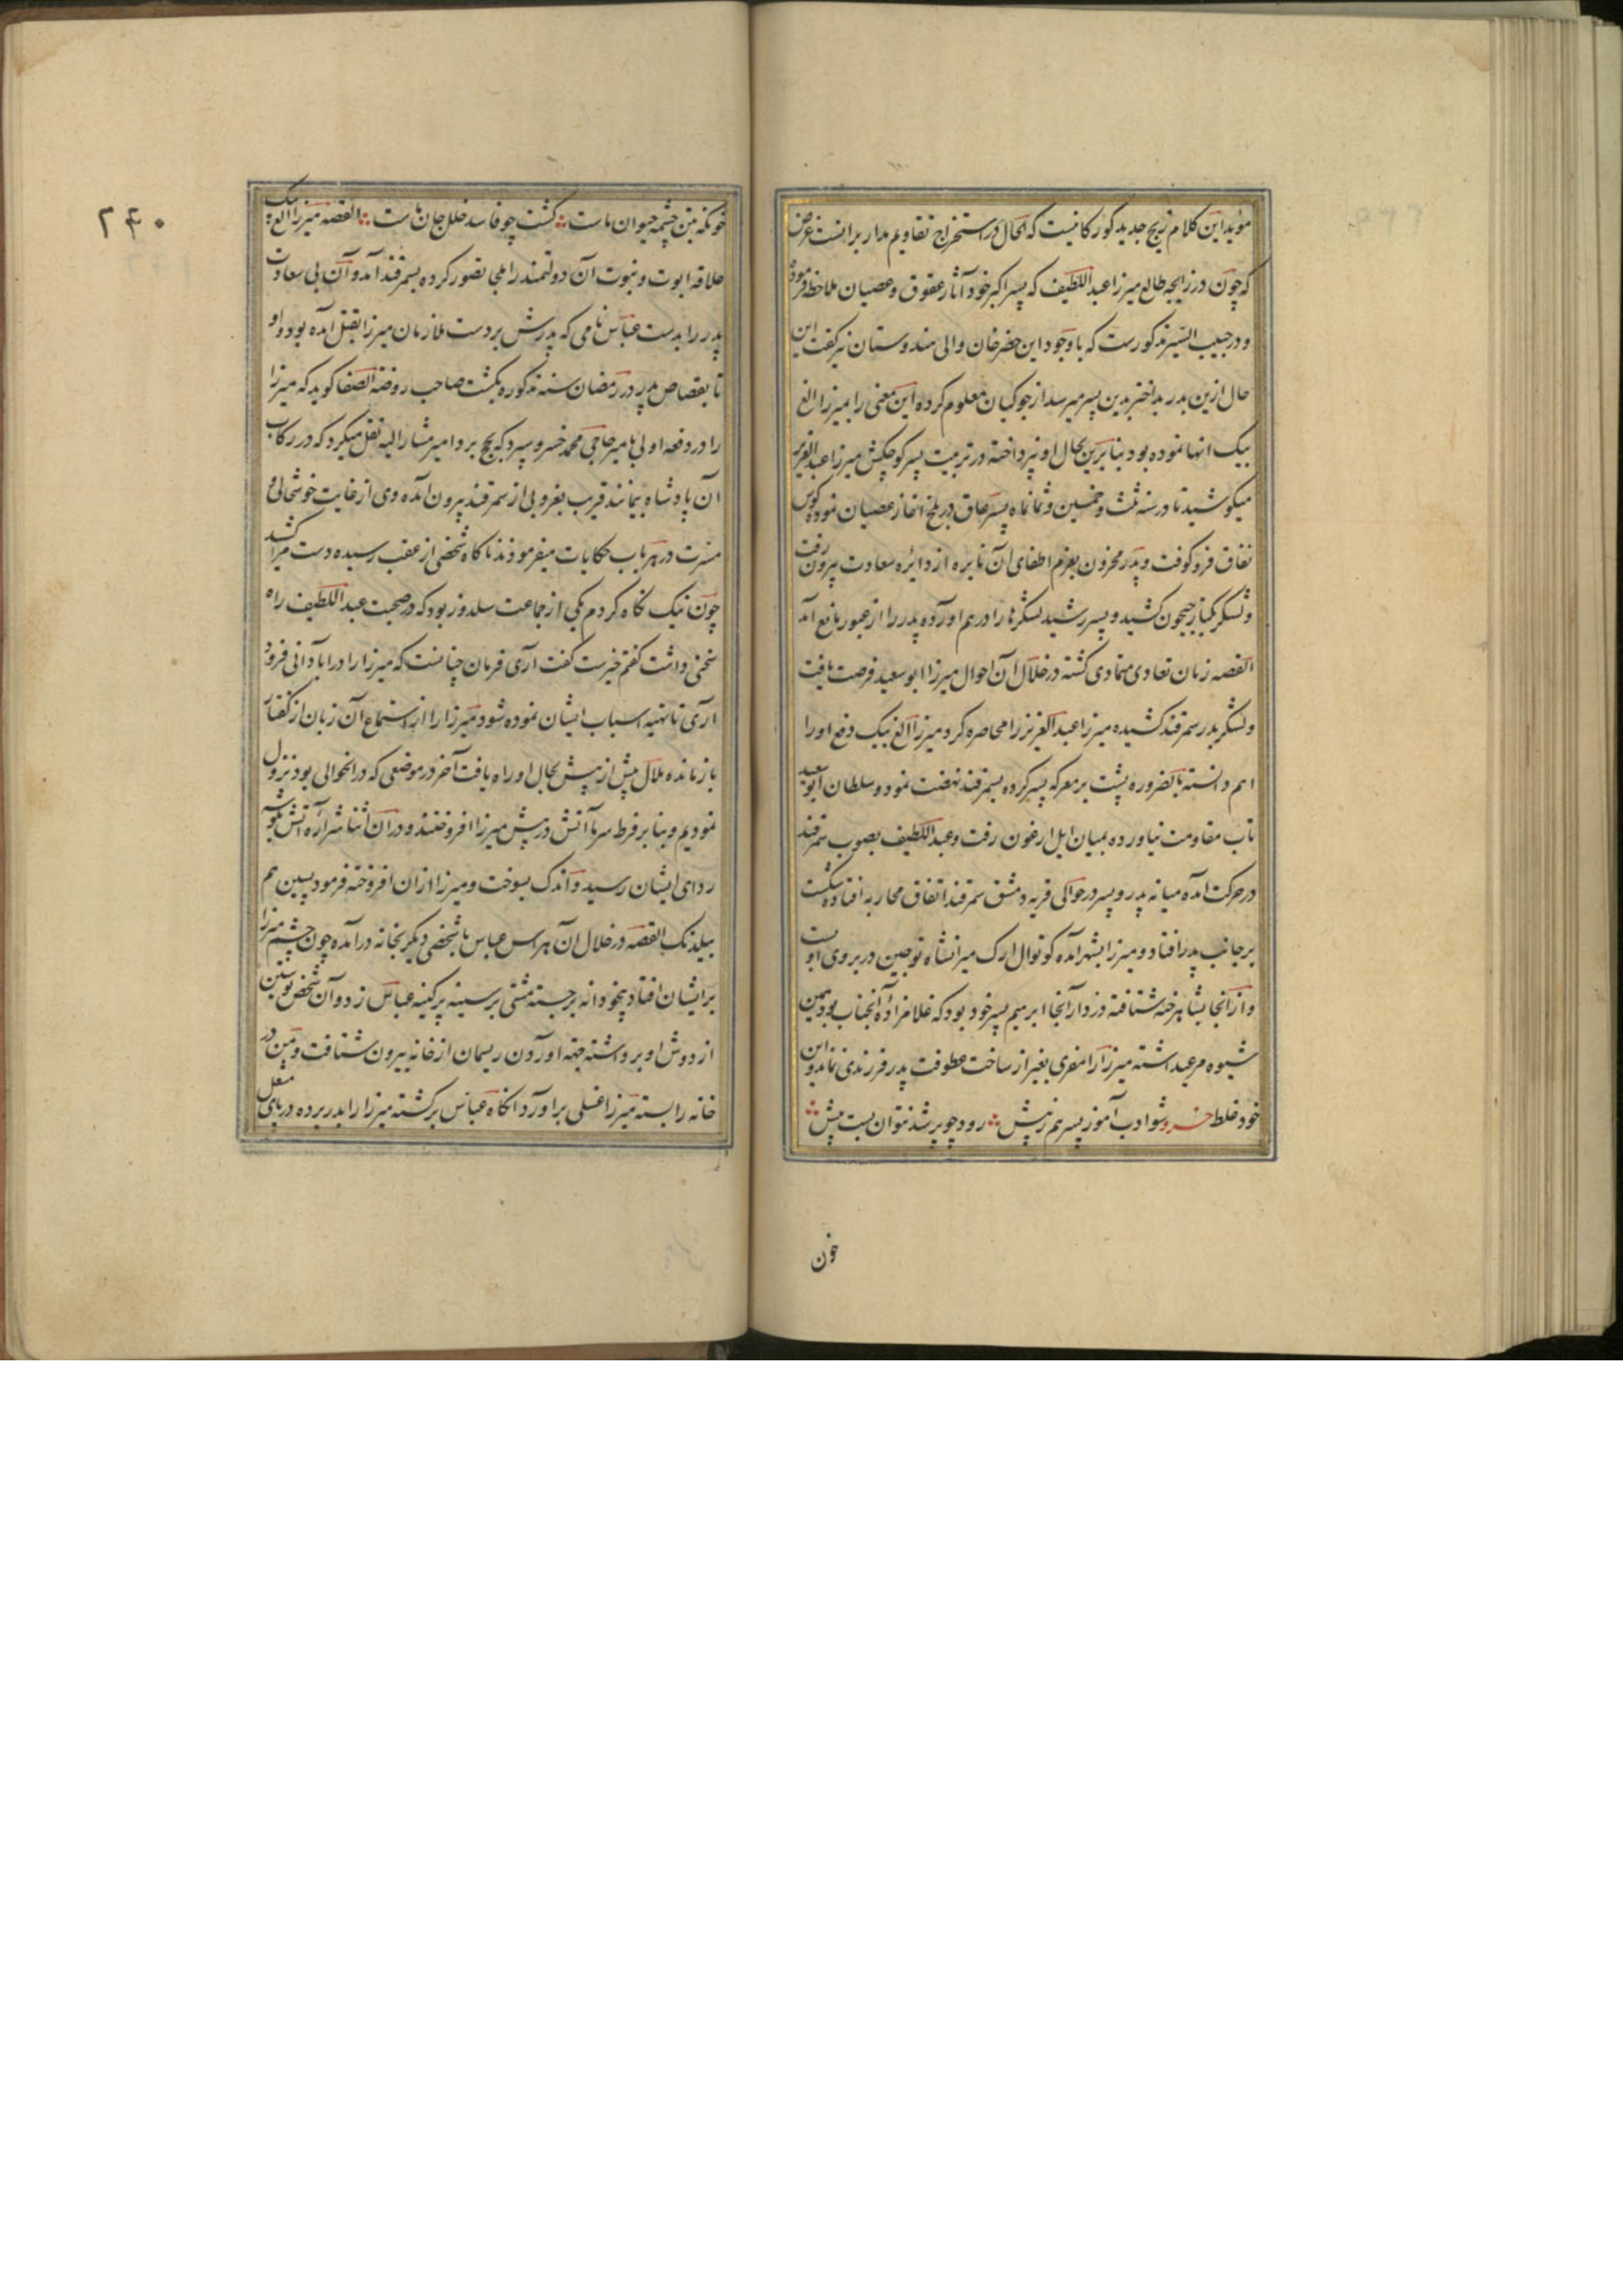 موید این کلام زیج جدید کورکانیست که الحال در استخراج تقاویم مدار برانست غرض
که چون در زایجه طالع میرزا عبداللطیف که پسر اکبر خود آثار عقوق و عصیان ملاحظه فرموده
و در حبیب السیر مذکورست که با وجود این خضرخان والی هندوستان نیز کفت این
حال ازین پدر بداختر بدین پسر میرسد از جوکیان معلوم کرده این معنی را بمیرزا الغ
بیک انها نموده بود بنابرین بحال او نپرداخته در تربیت پسر کوچکش میرزا عبدالعزیز
میکوشید تا در سنه ثلث و خمسین و ثمانماه پسر عاق در بلخ اغاز عصیان نموده کوس
نفاق فرو کوفت و پدر محزون بعزم اطفای آن نایره از دائره سعادت بیرون رفت
و لشکر بکنار جیحون کشید و پسر رشید لشکرها را در هم اورده پدر را از عبور مانع آمد
القصه زمان تعادی متمادی کشته در خلال آن احوال میرزا ابوسعید فرصت یافت
و لشکر بدر سمرقند کشیده میرزا عبدالعزیز را محاصره کرد میرزا الغ بیک دفع او را
اهم دانسته بالضروره پشت بر معرکه پسر کرده بسمرقند نهضت نمود و سلطان ابوسعید
تاب مقاومت نیاورده بمیان ایل ارغون رفت و عبداللطیف بصوب سمرقند
در حرکت امده میانه پدر و پسر در حوالی قریه دمشق سمرقند اتفاق محاربه افتاده شکست
بر جانب پدر افتاد و میرزا بشهر آمده کوتوال ارک میرانشاه قوجین در بر وی او بست
و از آنجا بشاهرخیه شتافته دزدار آنجا ابرهیم پسر خود بود که غلامزاده آنجناب بود همین
شیوه مرعی داشته میرزا را مفری بغیر از ساخت عطوفت پدر فرزندی نماند و این
خود غلط خسرو شو ادب آموز پسر هم ز پیش رود چو پر شد نتوان بست پیش
خون
۲۴۰
خونکه بتن چشمه حیوان ماست کشت چو فاسد خلل جان ماست القصه میرزا الغ بیک
علاقه ابوت و بنوت آن دولتمند را ملجا تصور کرده بسمرقند آمد و آن بی سعادت
پدر را بدست عباس نامی که پدرش بر دست ملازمان میرزا بقتل آمده بود داد
تا بقصاص پدر در رمضان سنه مذکوره بکشت صاحب روضه الصفا کوید که میرزا
را در دفعه اولی بامیر حاجی محمد خسرو سپرد که بحج برد امیر مشارالیه نقل میکرد که در رکاب
آن پادشاه بیمانند قریب بغروبی از سمرقند بیرون آمده وی از غایت خوشحالی و
مسرت در هر باب حکایات میفرمودند ناکاه شخصی از عقب رسیده دست مرا کشید
چون نیک نکاه کردم یکی از جماعت سلدوز بود که در صحبت عبداللطیف راه
سخنی داشت کفتم خیرست کفت آری فرمان چنانست که میرزا را در آبادانی فرود
آری تا تهیه اسباب ایشان نموده شود میرزا را از استماع آن زبان از کفتار
باز مانده ملال بیش از پیش بحال او راه یافت آخر در موضعی که در انحوالی بود نزول
نمودیم و بنابر فرط سرما آتش در پیش میرزا افروختند و در آن اثنا شراره آتش بکوشه
ردای ایشان رسید و اندک بسوخت و میرزا ازان افروخته فرمود بسین هم
بیلدنک القصه در خلال آن هراس عباس با شخصی دیکر بخانه درآمده چون چشم میرزا
بر ایشان افتاد بیخودانه برجسته مشتی بر سینه پر کینه عباس زد و آن شخص پوستین
از دوش او برداشته جهه اوردن ریسمان از خانه بیرون شتافت و من در
خانه را بسته میرزا غسلی برآورد آنکاه عباس برکشته میرزا را بدر برده در پای مشعل